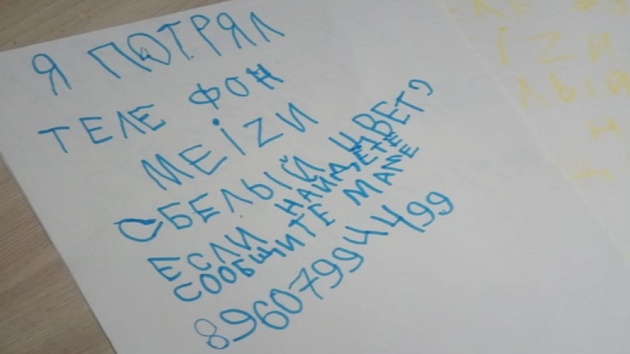 Я ПОТРЯЛ
ТЕЛЕ ФОН
МЕiZИ
БЕЛЫЙ ЦВЕТ
ЕСЛИ НАЙДЁТЕ
СООБЩИТЕ МАМЕ
89607994499